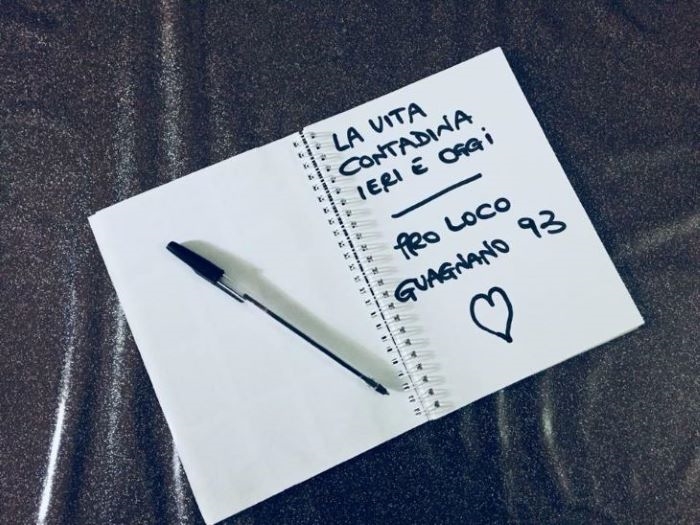 LA VITA
CONTADINA
IERI E OGGI
PRO LOCO
GUAGNANO 93